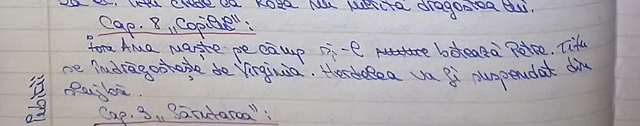 că Roza nu merită dragostea lui.
Cap. 8 „Copilul”:
Ana naște pe câmp și-l botează Petre. Titu
se îndrăgostește de Virginia. Herdelea va fi suspendat din
slujbă.
Cap. 9 „Sărutarea”: